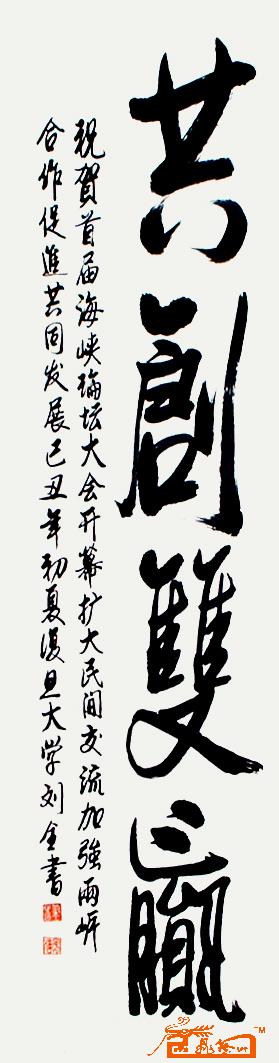 共創雙贏
祝賀首届海峡論坛大会开幕扩大民间交流加強兩岸
合作促進共同发展己丑年初夏復旦大学刘金書